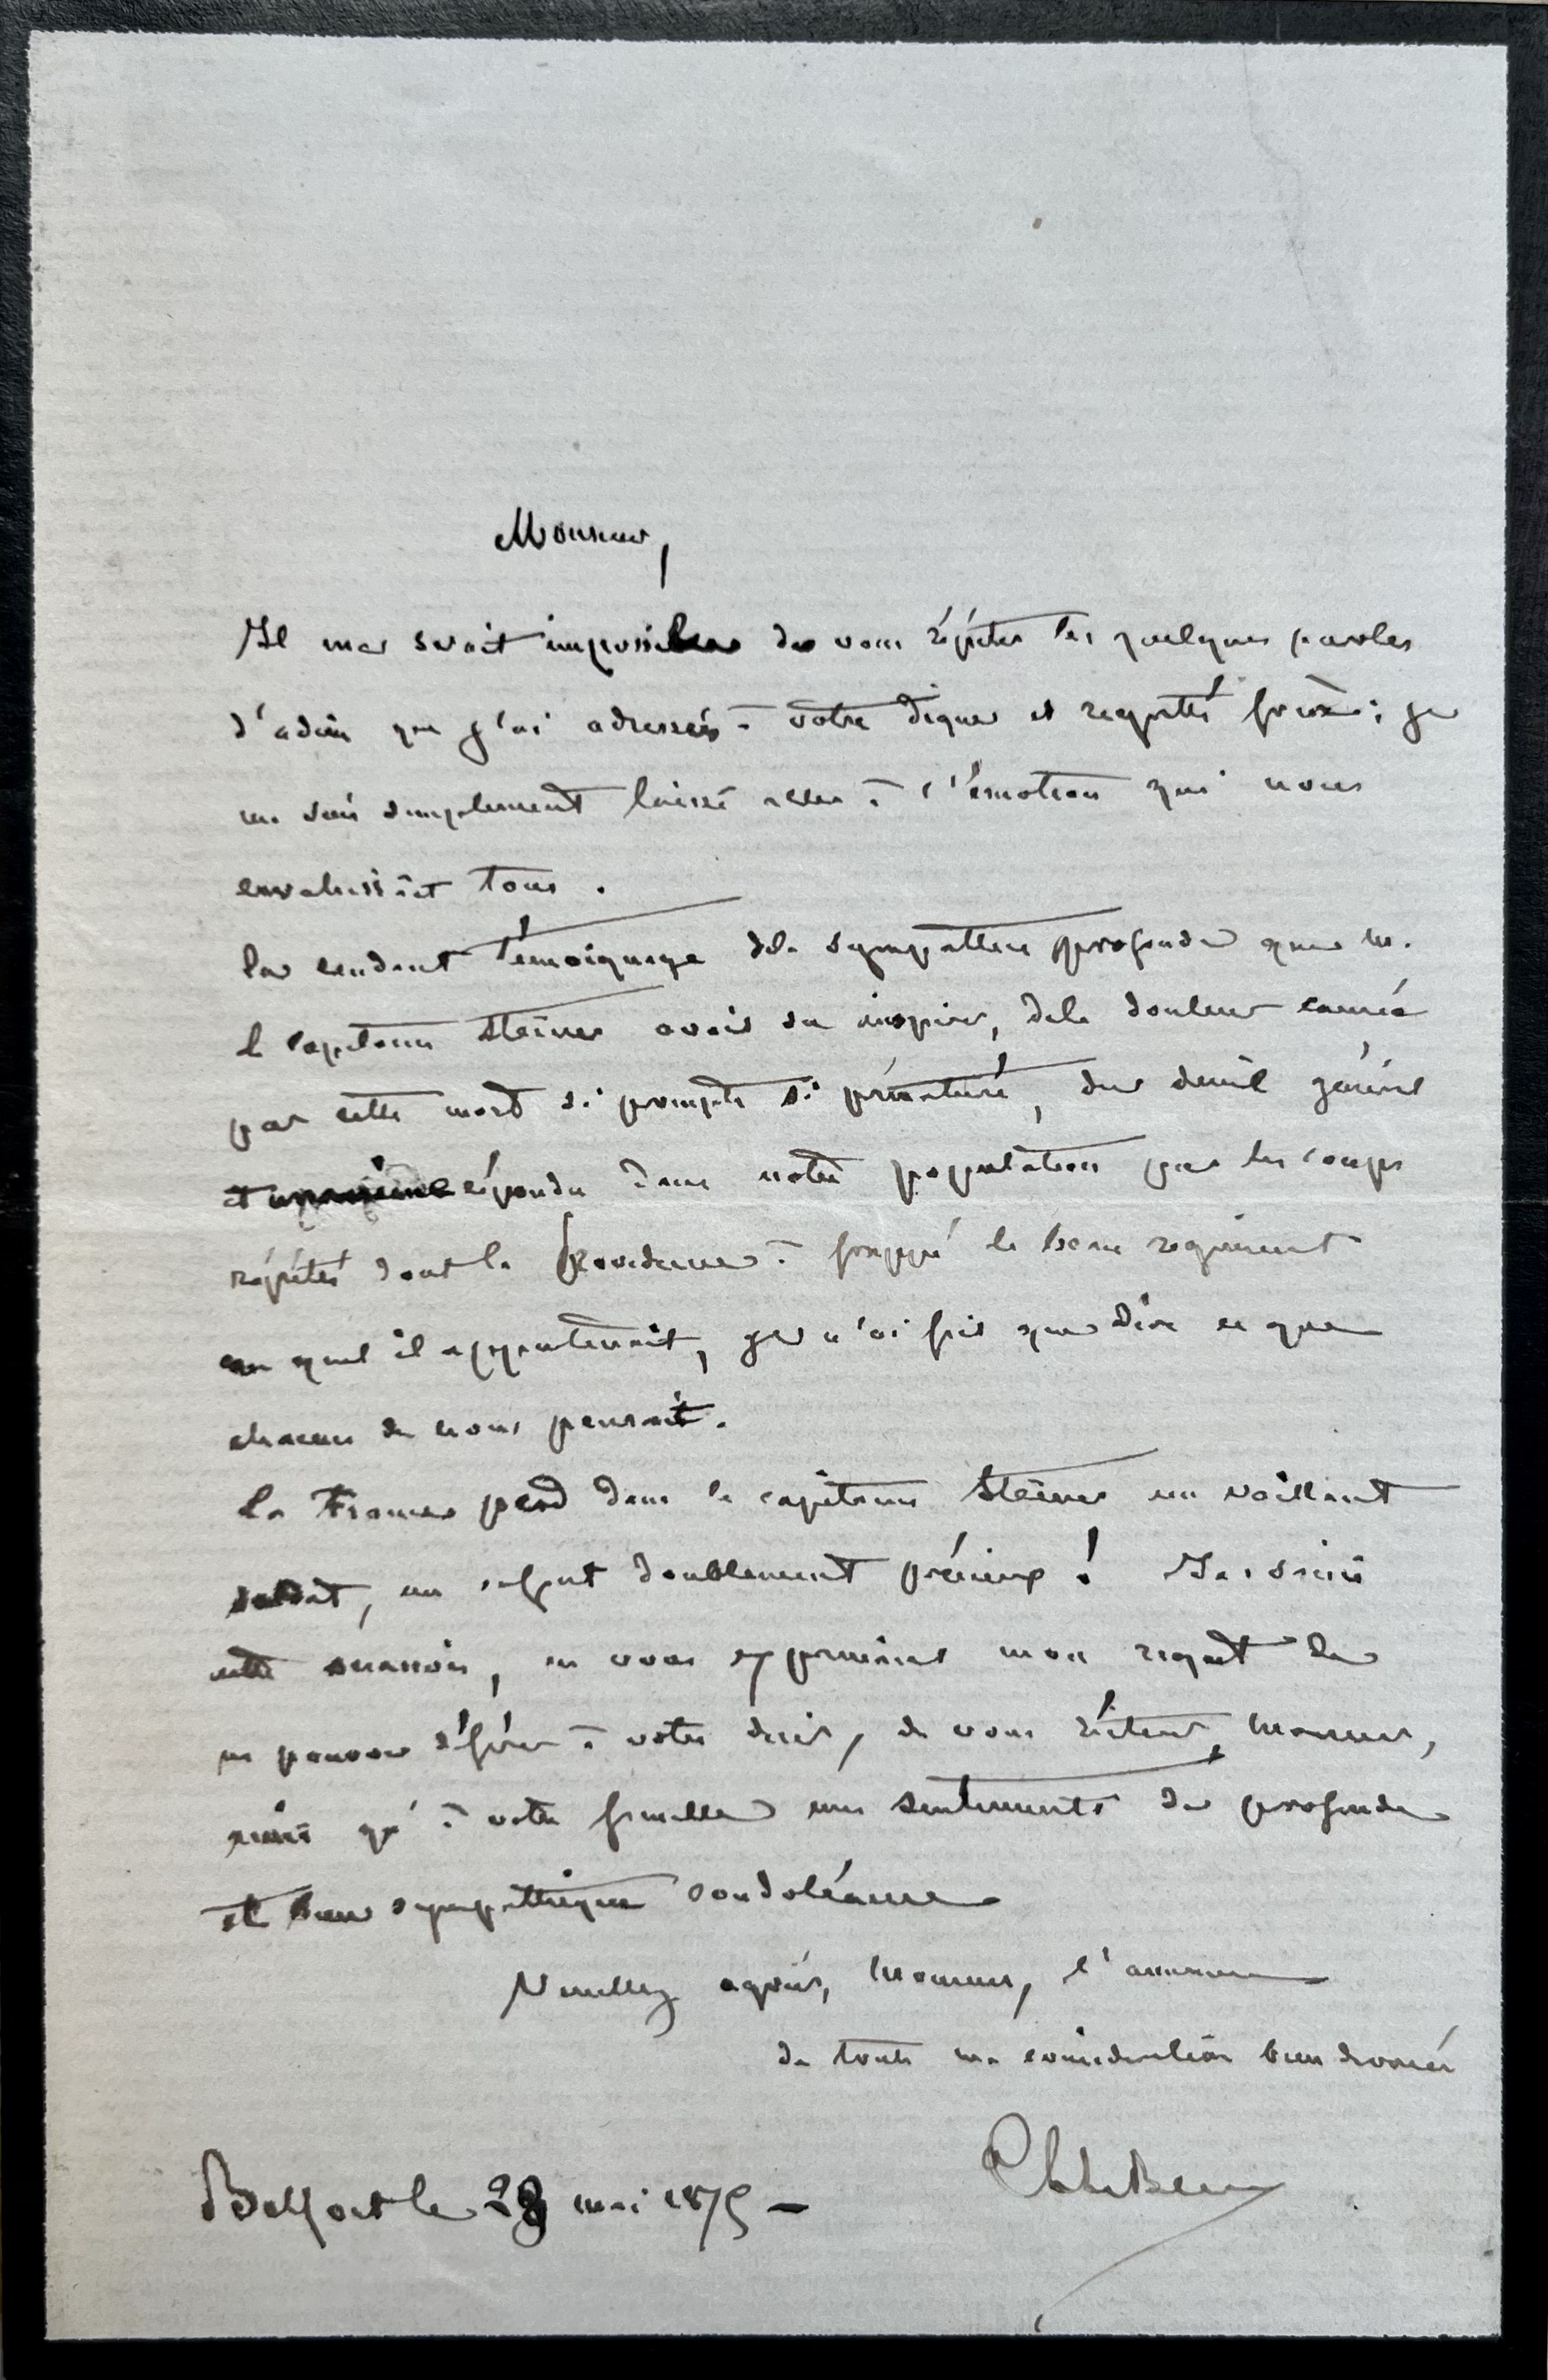 Monsieur,
Il me serait impossible de vous répéter les quelques paroles
d'adieu que j'ai adressées à votre digne et regretté frère ; je
me suis simplement laissé aller à l'émotion qui nous
envahissait tous.
En rendant témoignage de la sympathie profonde que M.
le capitaine Steiner avait su inspirer, de la douleur causée
par cette mort si prompte si prématurée, du deuil général
et répandu dans notre population par les coups
répétés dont la Providence a frappé le beau regiment
au quel il appartenait, je n'ai fait que dire ce que
chacun de nous pensait.
La France perd dans le capitaine Steiner un vaillant
soldat, un enfant doublement précieux ! Je saisis
cette occasion, en vous exprimant mon regret de
ne pouvoir déférer à votre désir, de vous réitérer, Monsieur,
ainsi qu'à votre famille mes sentiments de profonde
et bien sympathique condoléance
Veuillez agréer, Monsieur, l'assurance
de toute ma considération bien dévouée
Belfort le 28 mai 1875 –